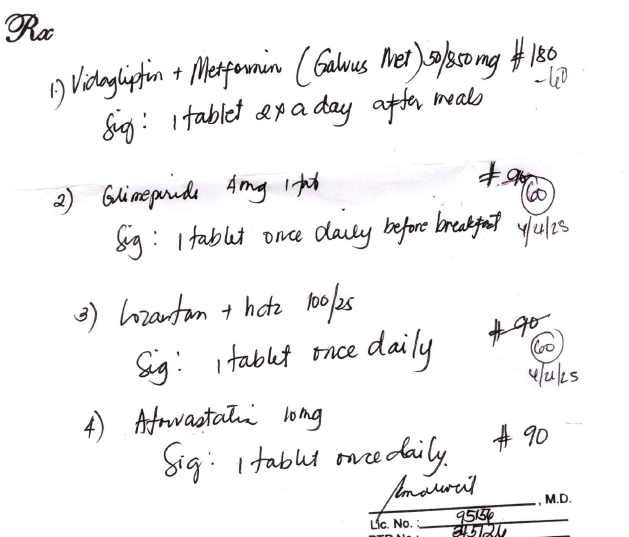 Rx
1.) Vidagliptin + Metformin (Galvus Met) 50/850mg #180
-60
Sig: 1 tablet 2x a day after meals
2) Glimepiride 4mg 1 tab #90
60
Sig: 1 tablet once daily before breakfast 4/21/25
3) Lozartan + hctz 100/25
#90
60
Sig: 1 tablet once daily
4/21/25
4) Atorvastatin 10mg
#90
Sig: 1 tablet once daily.
, M.D.
Lic. No.: